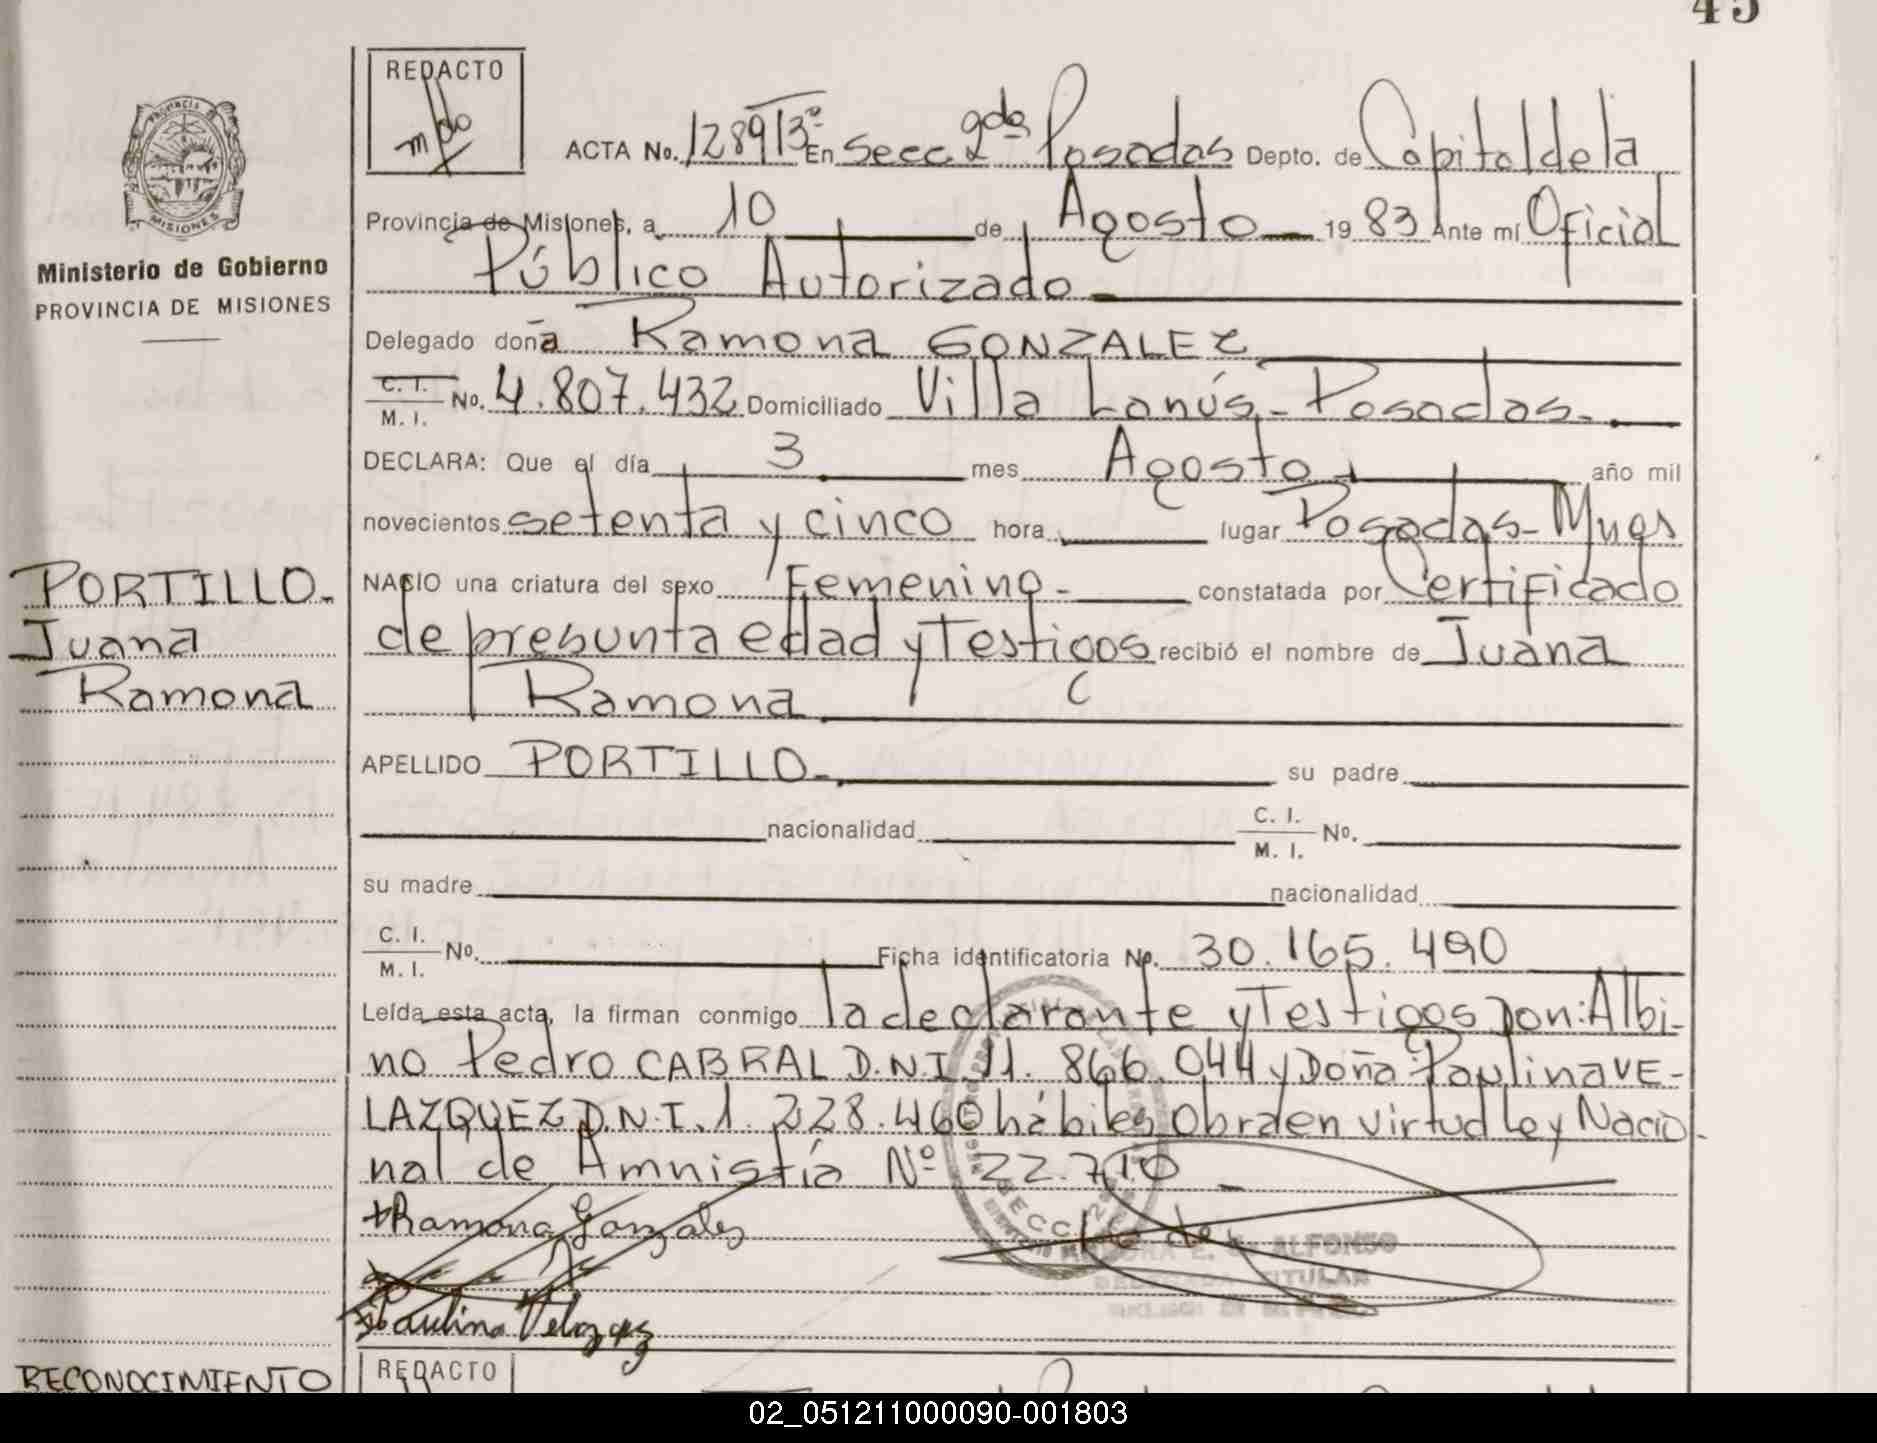 45
REDACTO
ACTA No. 12891 3º En Secc. 2da Posadas Depto. de Capital de la
Provincia de Misiones, a 10 de Agosto 1983 Ante mí Oficial
Público Autorizado
Ministerio de Gobierno
PROVINCIA DE MISIONES
Delegado doña Ramona GONZALEZ
C. I. M. I. No. 4.807.432 Domiciliado Villa Lanús - Posadas.
DECLARA: Que el día 3 mes Agosto año mil
novecientos setenta y cinco hora lugar Posadas - Mnes
PORTILLO.
Juana
Ramona
NACIO una criatura del sexo Femenino - constatada por Certificado
de presunta edad y Testigos recibió el nombre de Juana
Ramona
APELLIDO PORTILLO. su padre
nacionalidad C. I. M. I. No.
su madre nacionalidad
C. I. M. I. No. Ficha identificatoria No. 30.165.490
Leída esta acta, la firman conmigo la declarante y Testigos Don: Albi-
no Pedro CABRAL D.N.I. 11.866.044 y Doña Paulina VE-
LAZQUEZ D.N.I. 1.228.460 hábiles Obra en virtud Ley Nacio-
nal de Amnistía Nº 22.710
Ramona Gonzalez
ALFONSO
TITULAR
Paulina Velazquez
RECONOCIMIENTO
REDACTO
02_051211000090-001803